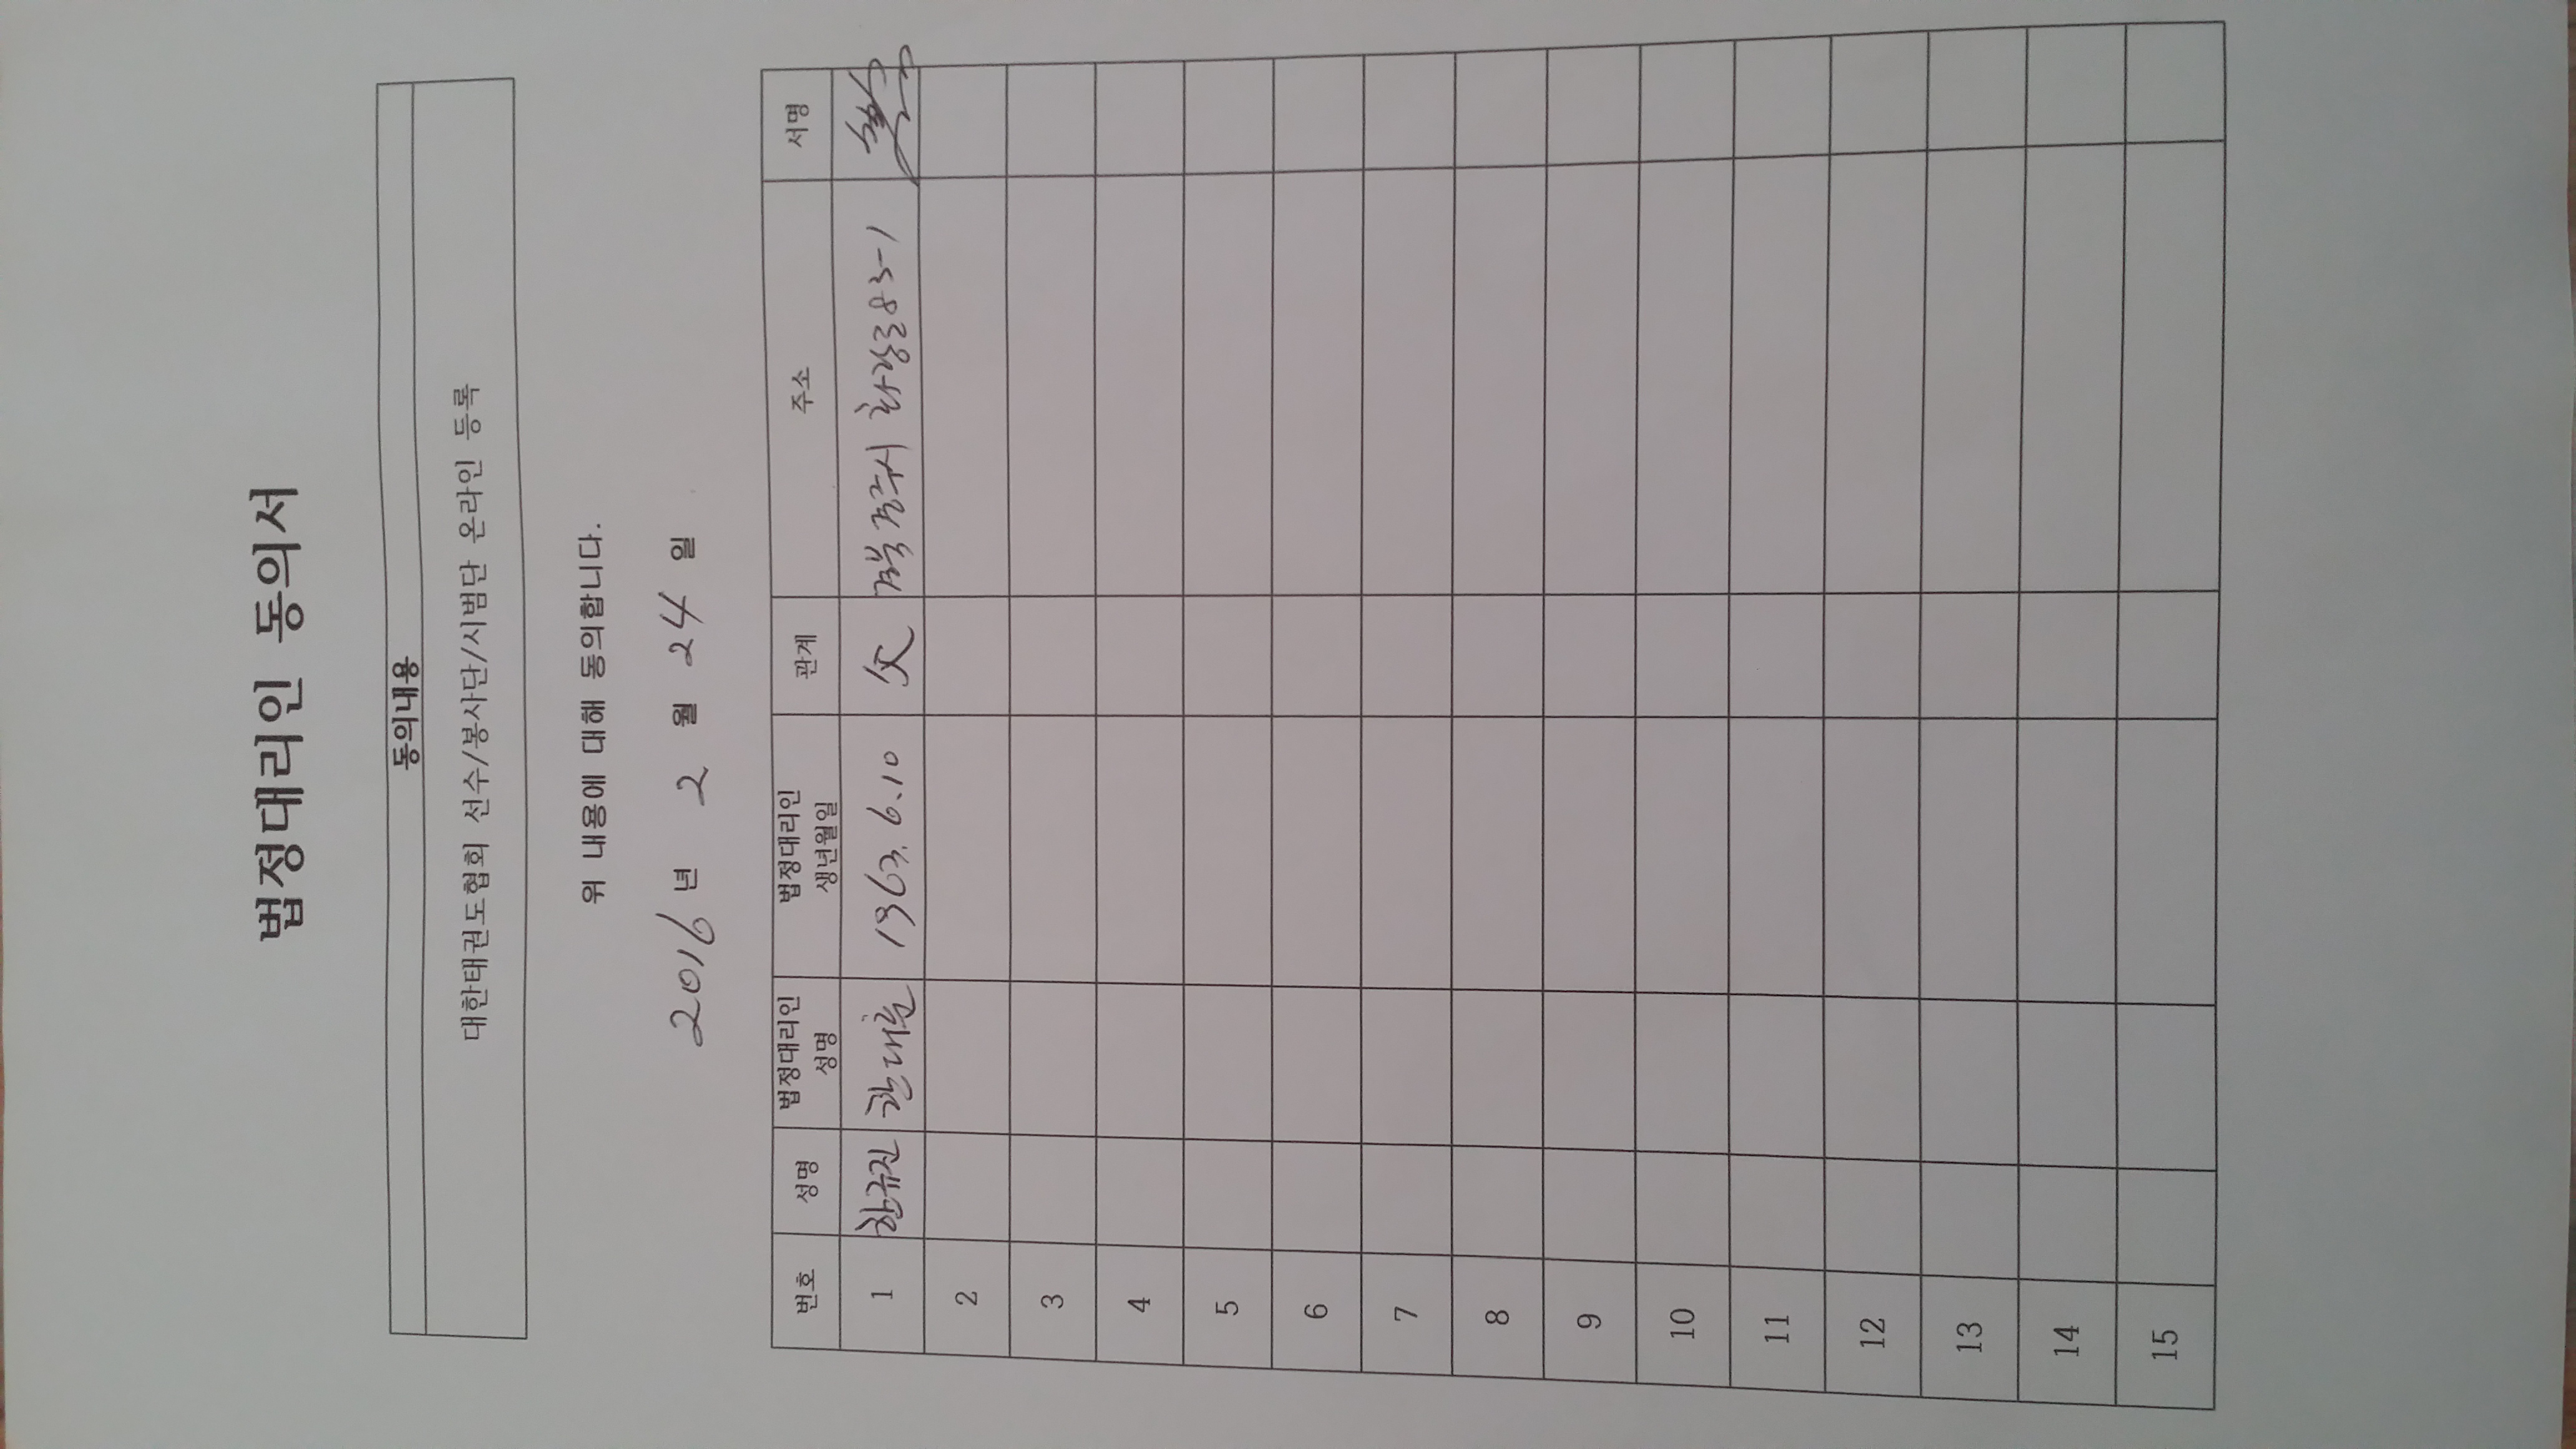 법정대리인 동의서
동의내용
대한태권도협회 선수/봉사단/시범단 온라인 등록
위 내용에 대해 동의합니다.
2016 년 2 월 24 일
번호 성명 법정대리인 성명 법정대리인 생년월일 관계 주소 서명
1 한규진 한대훈 1963. 6. 10 父 전주시
2
3
4
5
6
7
8
9
10
11
12
13
14
15